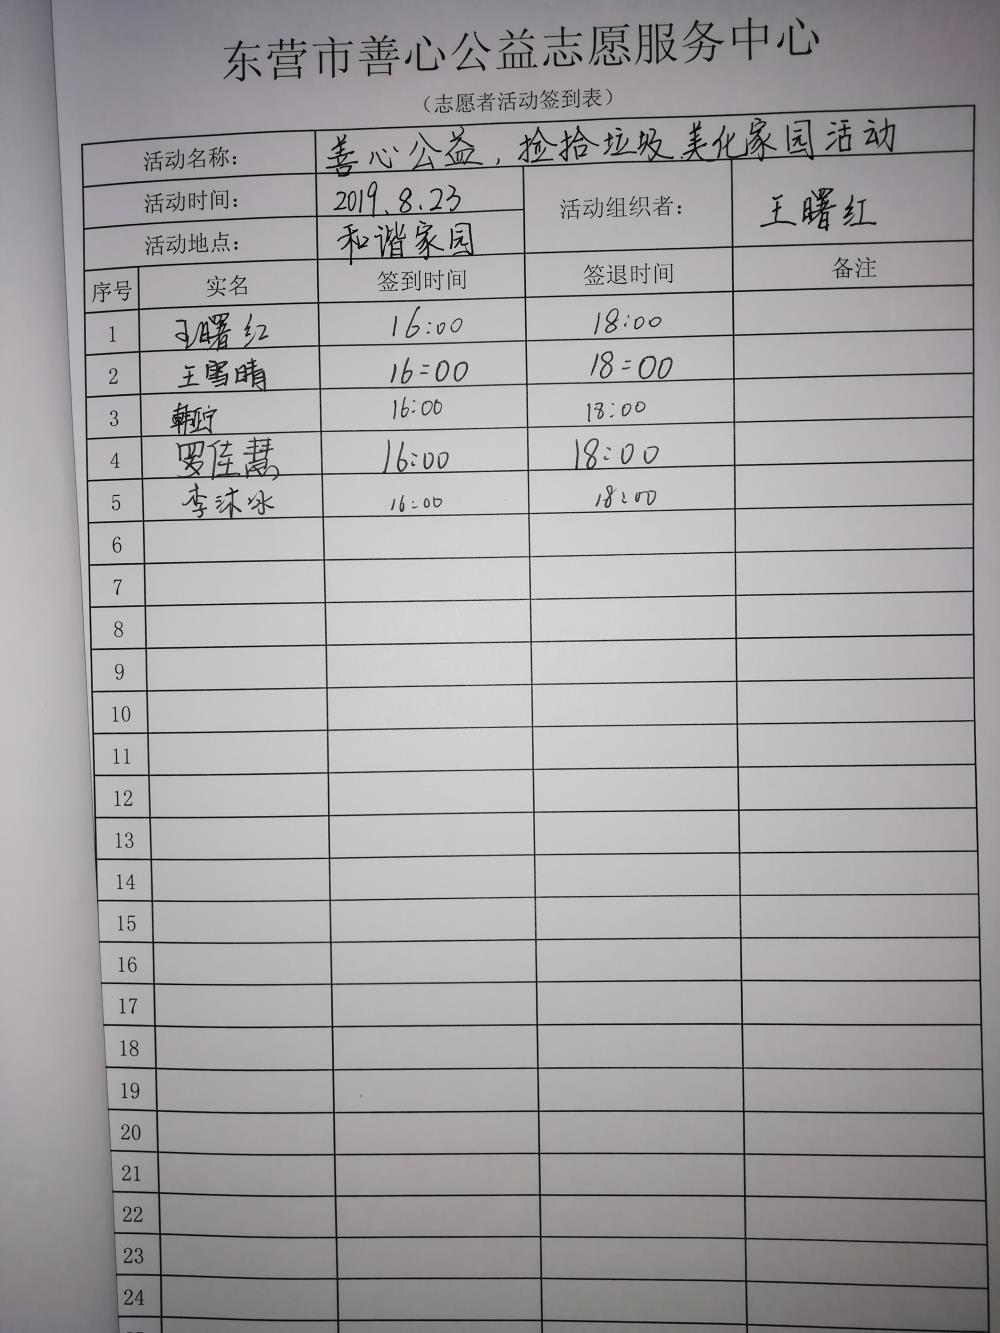 东营市善心公益志愿服务中心
（志愿者活动签到表）
活动名称： 善心公益，捡拾垃圾美化家园活动
活动时间： 2019.8.23 活动组织者： 王曙红
活动地点： 和谐家园
序号 实名 签到时间 签退时间 备注
1 王曙红 16:00 18:00
2 王雪晴 16:00 18:00
3 16:00 18:00
4 罗佳慧 16:00 18:00
5 李沐冰 16:00 18:00
6
7
8
9
10
11
12
13
14
15
16
17
18
19
20
21
22
23
24